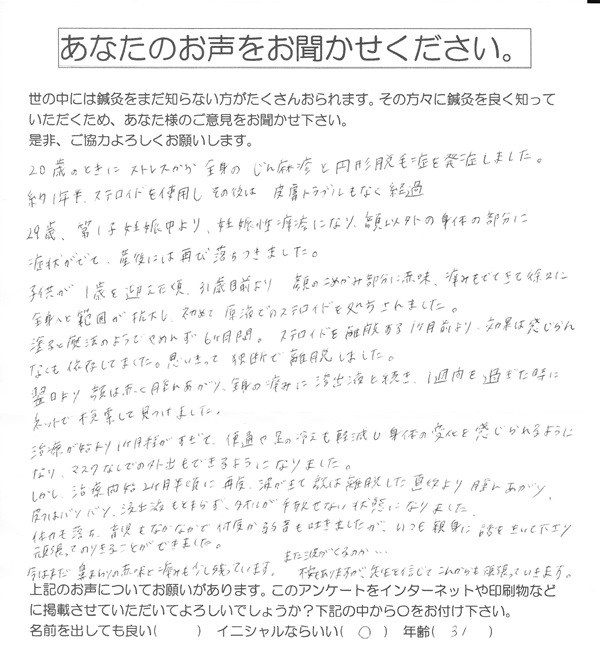 あなたのお声をお聞かせください。
世の中には鍼灸をまだ知らない方がたくさんおられます。その方々に鍼灸を良く知って
いただくため、あなた様のご意見をお聞かせ下さい。
是非、ご協力よろしくお願いします。
20歳のときに ストレスから 全身の じん麻疹 と 円形脱毛症を発症しました。
約1年半、ステロイドを使用し その後は 皮膚トラブルもなく 経過
29歳、第1子妊娠中より、妊娠性痒疹になり、顔以外の身体の部分に
症状がでて、産後には再び落ちつきました。
子供が 1歳を迎えた頃、31歳目前より 顔のこめかみ部分に赤味、痛みもでてきて徐々に
全身へと範囲が拡大し、初めて 原液でのステロイドを処方されました。
塗ると魔法のようで やめれず 6ヶ月間。 ステロイドを離脱する1ヶ月前より、効果は感じられ
なくも依存してました。思いきって 独断で離脱しました。
翌日より 顔は赤く腫れあがり、全身の痛みに滲出液と続き、1週間を過ぎた時に
ネットで検索して見つけました。
治療が始まり1ヶ月程がすぎて、便通や足の冷えも軽減し身体の変化を感じられるように
なり、マスクなしでの外出もできるようになりました。
しかし、治療開始2ヶ月半頃に再度、波がきて 顔は離脱した直後より 腫れあがり、
皮フはバリバリ、滲出液もとまらず、タオルが手放せない状態になりました。
体力も落ち、育児もなかなかで 何度か弱音も吐きましたが、いつも親身に話をきいて下さり
頑張ってのりきることができました。
今はまだ 鼻まわりの赤味と痛みも少し残っています。 また波がくるのか…
不安もありますが、先生を信じて これからも頑張っていきます。
上記のお声についてお願いがあります。このアンケートをインターネットや印刷物など
に掲載させていただいてよろしいでしょうか？下記の中から○をお付け下さい。
名前を出しても良い( ) イニシャルならいい( ○ ) 年齢( 31 )